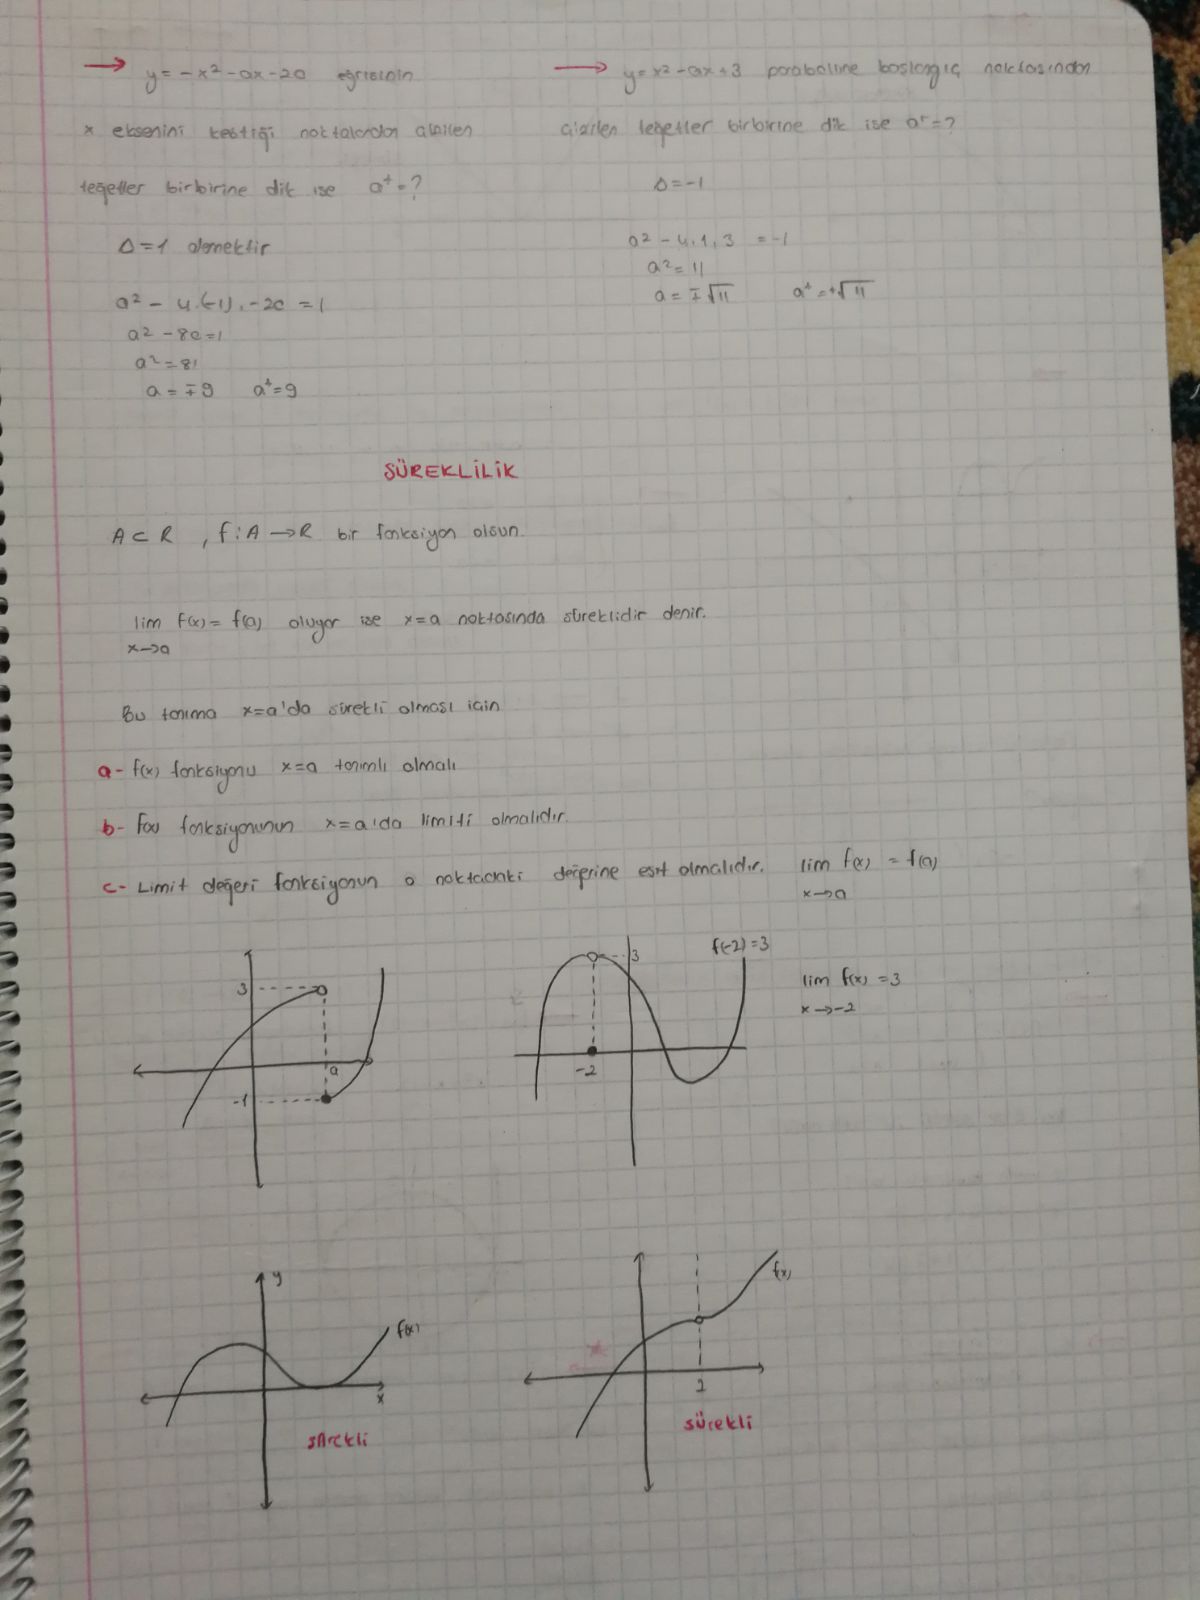 → y = -x² - ax - 20 eğrisinin
x eksenini kestiği noktalardan çizilen
teğetler birbirine dik ise a⁺ = ?
Δ = 1 demektir
a² - 4.(-1).-20 = 1
a² - 80 = 1
a² = 81
a = ∓9 a⁺ = 9
→ y = x² - ax + 3 parabolüne başlangıç noktasından
çizilen teğetler birbirine dik ise a⁺ = ?
Δ = -1
a² - 4.1.3 = -1
a² = 11
a = ∓√11 a⁺ = +√11
SÜREKLİLİK
A ⊂ R , f: A → R bir fonksiyon olsun.
lim f(x) = f(a) oluyor ise x=a noktasında süreklidir denir.
x→a
Bu tanıma x=a'da sürekli olması için
a- f(x) fonksiyonu x=a tanımlı olmalı
b- F(x) fonksiyonunun x=a'da limiti olmalıdır.
c- Limit değeri fonksiyonun a noktadaki değerine eşit olmalıdır. lim f(x) = f(a)
x→a
3
a
-1
3
f(-2)=3
-2
lim f(x) = 3
x→-2
y
f(x)
x
sürekli
f(x)
2
sürekli